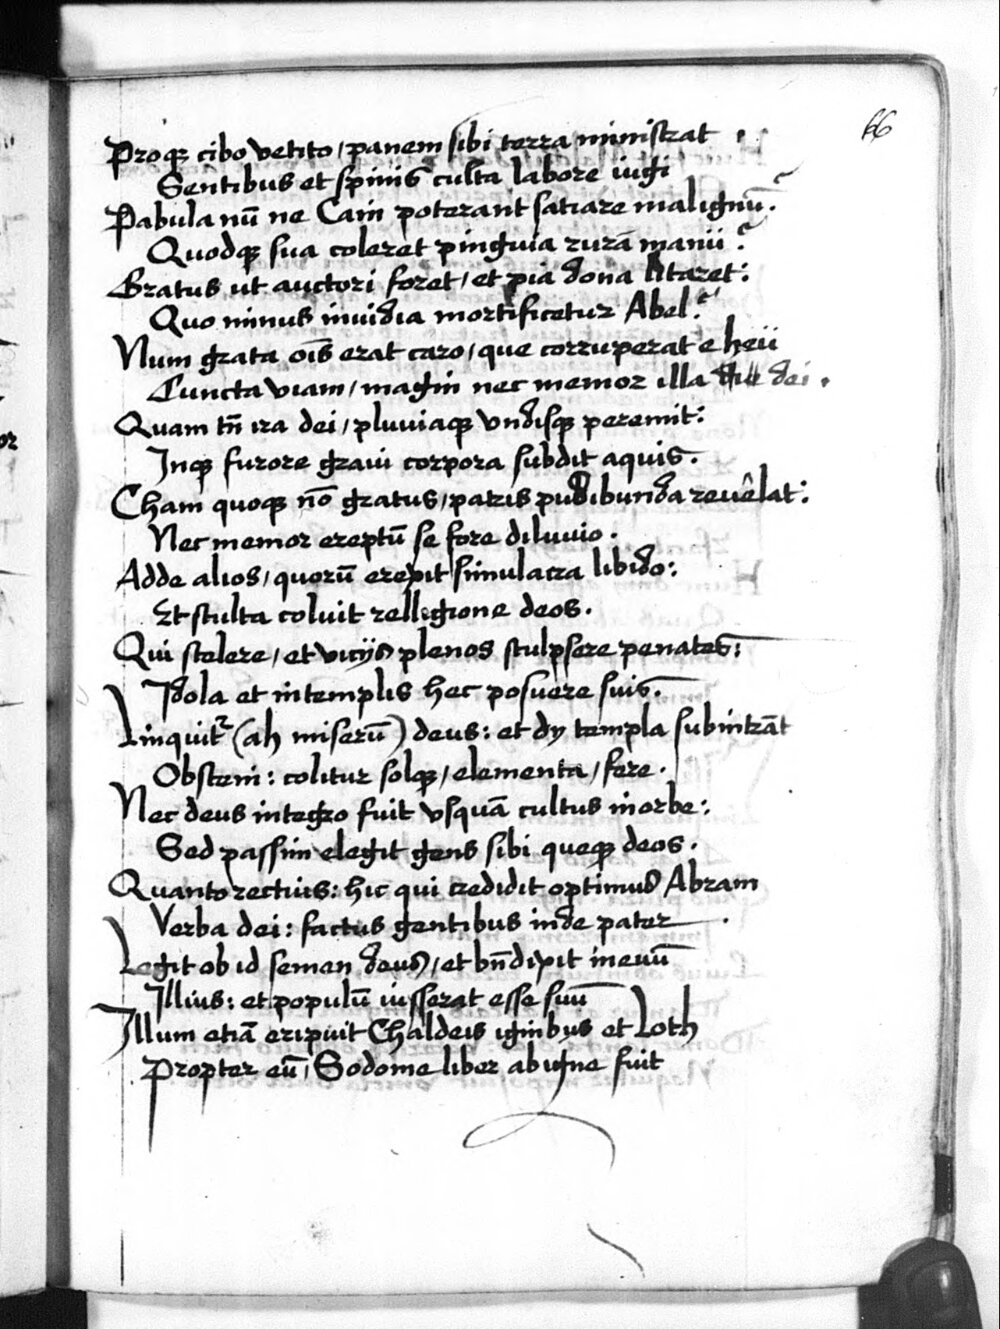 66
Proq₃ cibo vetito / panem sibi terra ministrat
Sentibus et spinis culta labore iugi
Pabula nū ne Cain poterant satiare malignū?
Quodq₃ sua coleret pinguia rura manu?
Gratus ut auctori foret / et pia dona litaret:
Quo minus invidia mortificetur Abel?
Num grata oīs erat caro / que corruperat e heu
Cuncta viam / magni nec memor illa dei.
Quam tn̄ ira dei / pluviaq₃ undisq₃ peremit:
Inq₃ furore gravi corpora subdit aquis.
Cham quoq₃ nō gratus / patris pudibunda revelat:
Nec memor ereptū se fore diluvio.
Adde alios / quorū erepit simulacra libido:
Et stulta coluit relligione deos.
Qui scelere / et vicijs plenos sculpsere penates:
Idola et in templis hec posuere suis.
Linquitr (ah miserū) deus: et dy templa subintrāt
Obsceni: colitur solq₃ / elementa / fere.
Nec deus integro fuit usquā cultus in orbe:
Sed passim elegit gens sibi queq₃ deos.
Quanto rectius: hic qui credidit optimus Abram
Verba dei: factus gentibus inde pater.
Legit ob id semen deus / et bn̄dixit in evū
Illius: et populū iusserat esse suū
Illum etiā eripuit Chaldeis ignibus et Loth
Propter eū / Sodome liber ab igne fuit